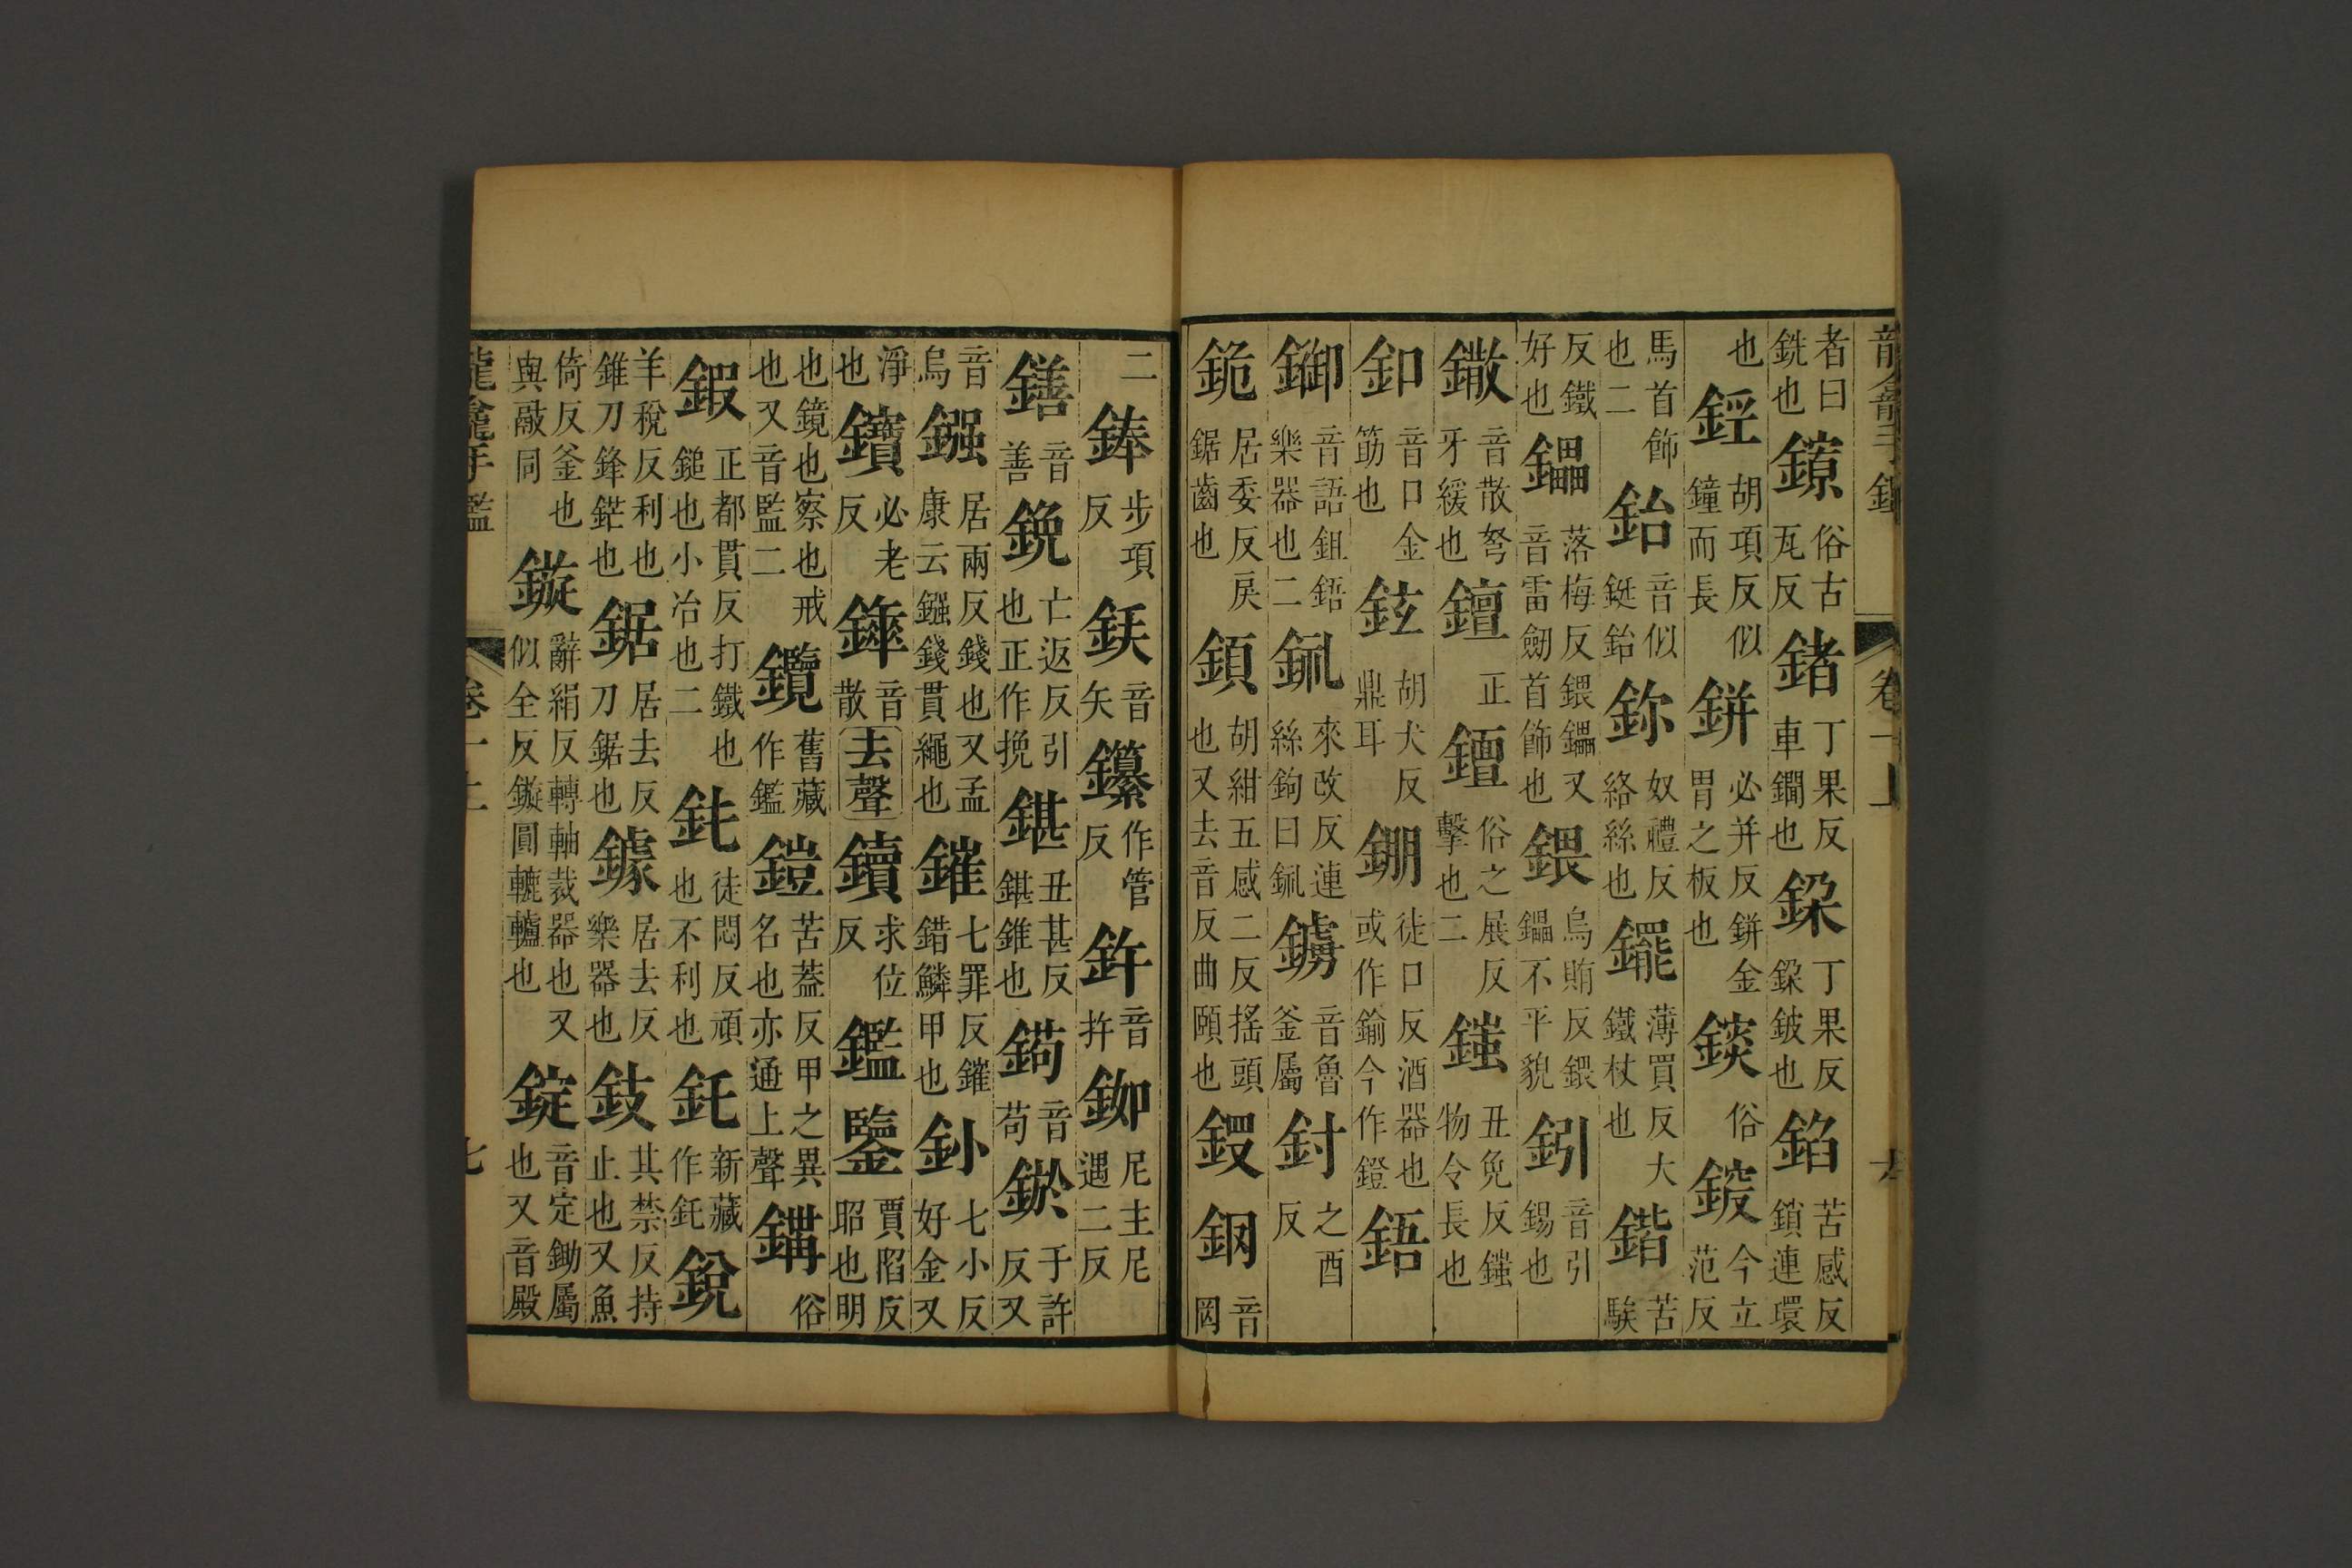 者曰銑也鐐俗古瓦反鍺丁果反車鐧也鍌丁果反鍌鈹也錎苦感反鎖連環
也鋞胡項反似鐘而長鉼必并反鉼金冑之板也錟俗鋄今立范反
馬首飾也二鈶音似鋌鈶鉨奴禮反絡絲也䥯薄買反大鐵杖也鍇苦駭
反鐵好也鑘落梅反鍡鑘又音雷劒首飾也鍡烏賄反鍡鑘不平貌鈏音引錫也
鏾音散弩牙緩也鐔正鐔俗之展反擊也二䥆丑免反䥆物令長也
釦音口金筯也鉉胡犬反鼎耳鋤徒口反酒器也或作鍮今作鐙鋙
鋤音語鉏鋙樂器也二銤來改反連絲鉤曰銤鐪音魯釜屬釨之酉反
鉋居委反戾鋸齒也頜胡紺五感二反搖頭也又去音反曲頤也鍐鋼音岡
二鋒步項反鉃音矢鑤作管反鉾音拤鉚尼主尼遇二反
鐥音善鋔亡返反引也正作挽鍖丑甚反鍖錐也䤭音苟鍁于許反又
音烏鏹居兩反錢也又孟康云鏹錢貫繩也鏙七罪反鏙錯鱗甲也釥七小反好金又
淨也鑶必老反鏲音散去聲鑟求位反鑑鑒賈陷反昭也明
也鏡也察也戒也又音監二鑬舊藏作鑑鎧苦蓋反甲之異名也亦通上聲鏂俗
鍛正都貫反打鐵也鎚也小冶也二鈍徒悶反頑也不利也䤩新藏作䤩銳
羊稅反利也錐刀鋒鋩也鋸居去反刀鋸也鐻居去反樂器也䤡其禁反持止也又魚
倚反釜也與敲同鏇辭絹反轉軸裁器也又似全反鏇圓轆轤也錠音定鋤屬也又音殿